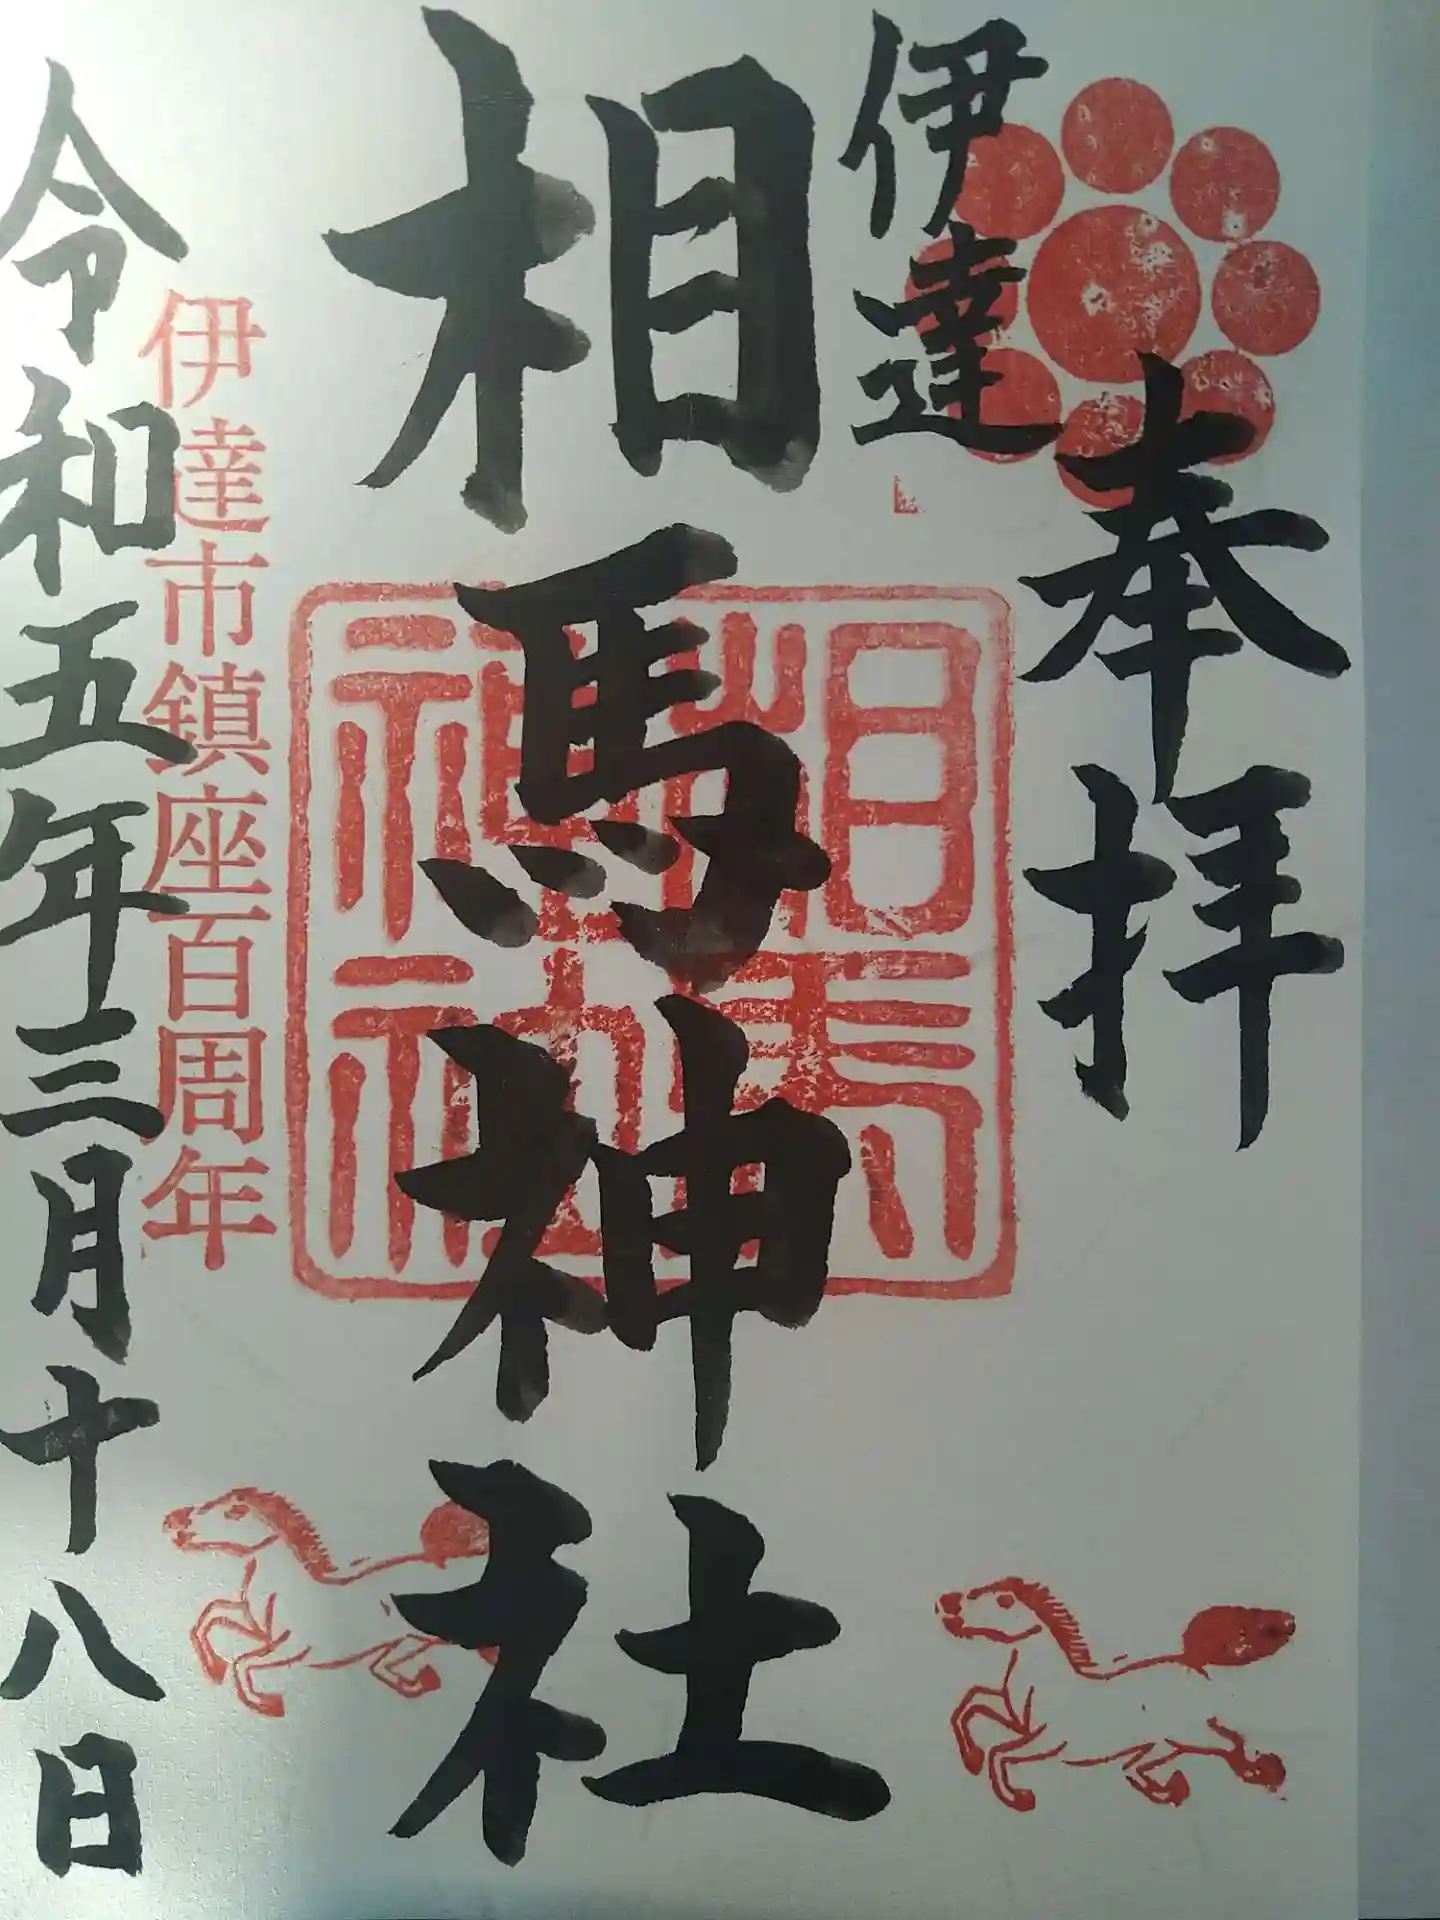 奉拝
伊達
相馬神社
相馬
神社
伊達市鎮座百周年
令和五年三月十八日